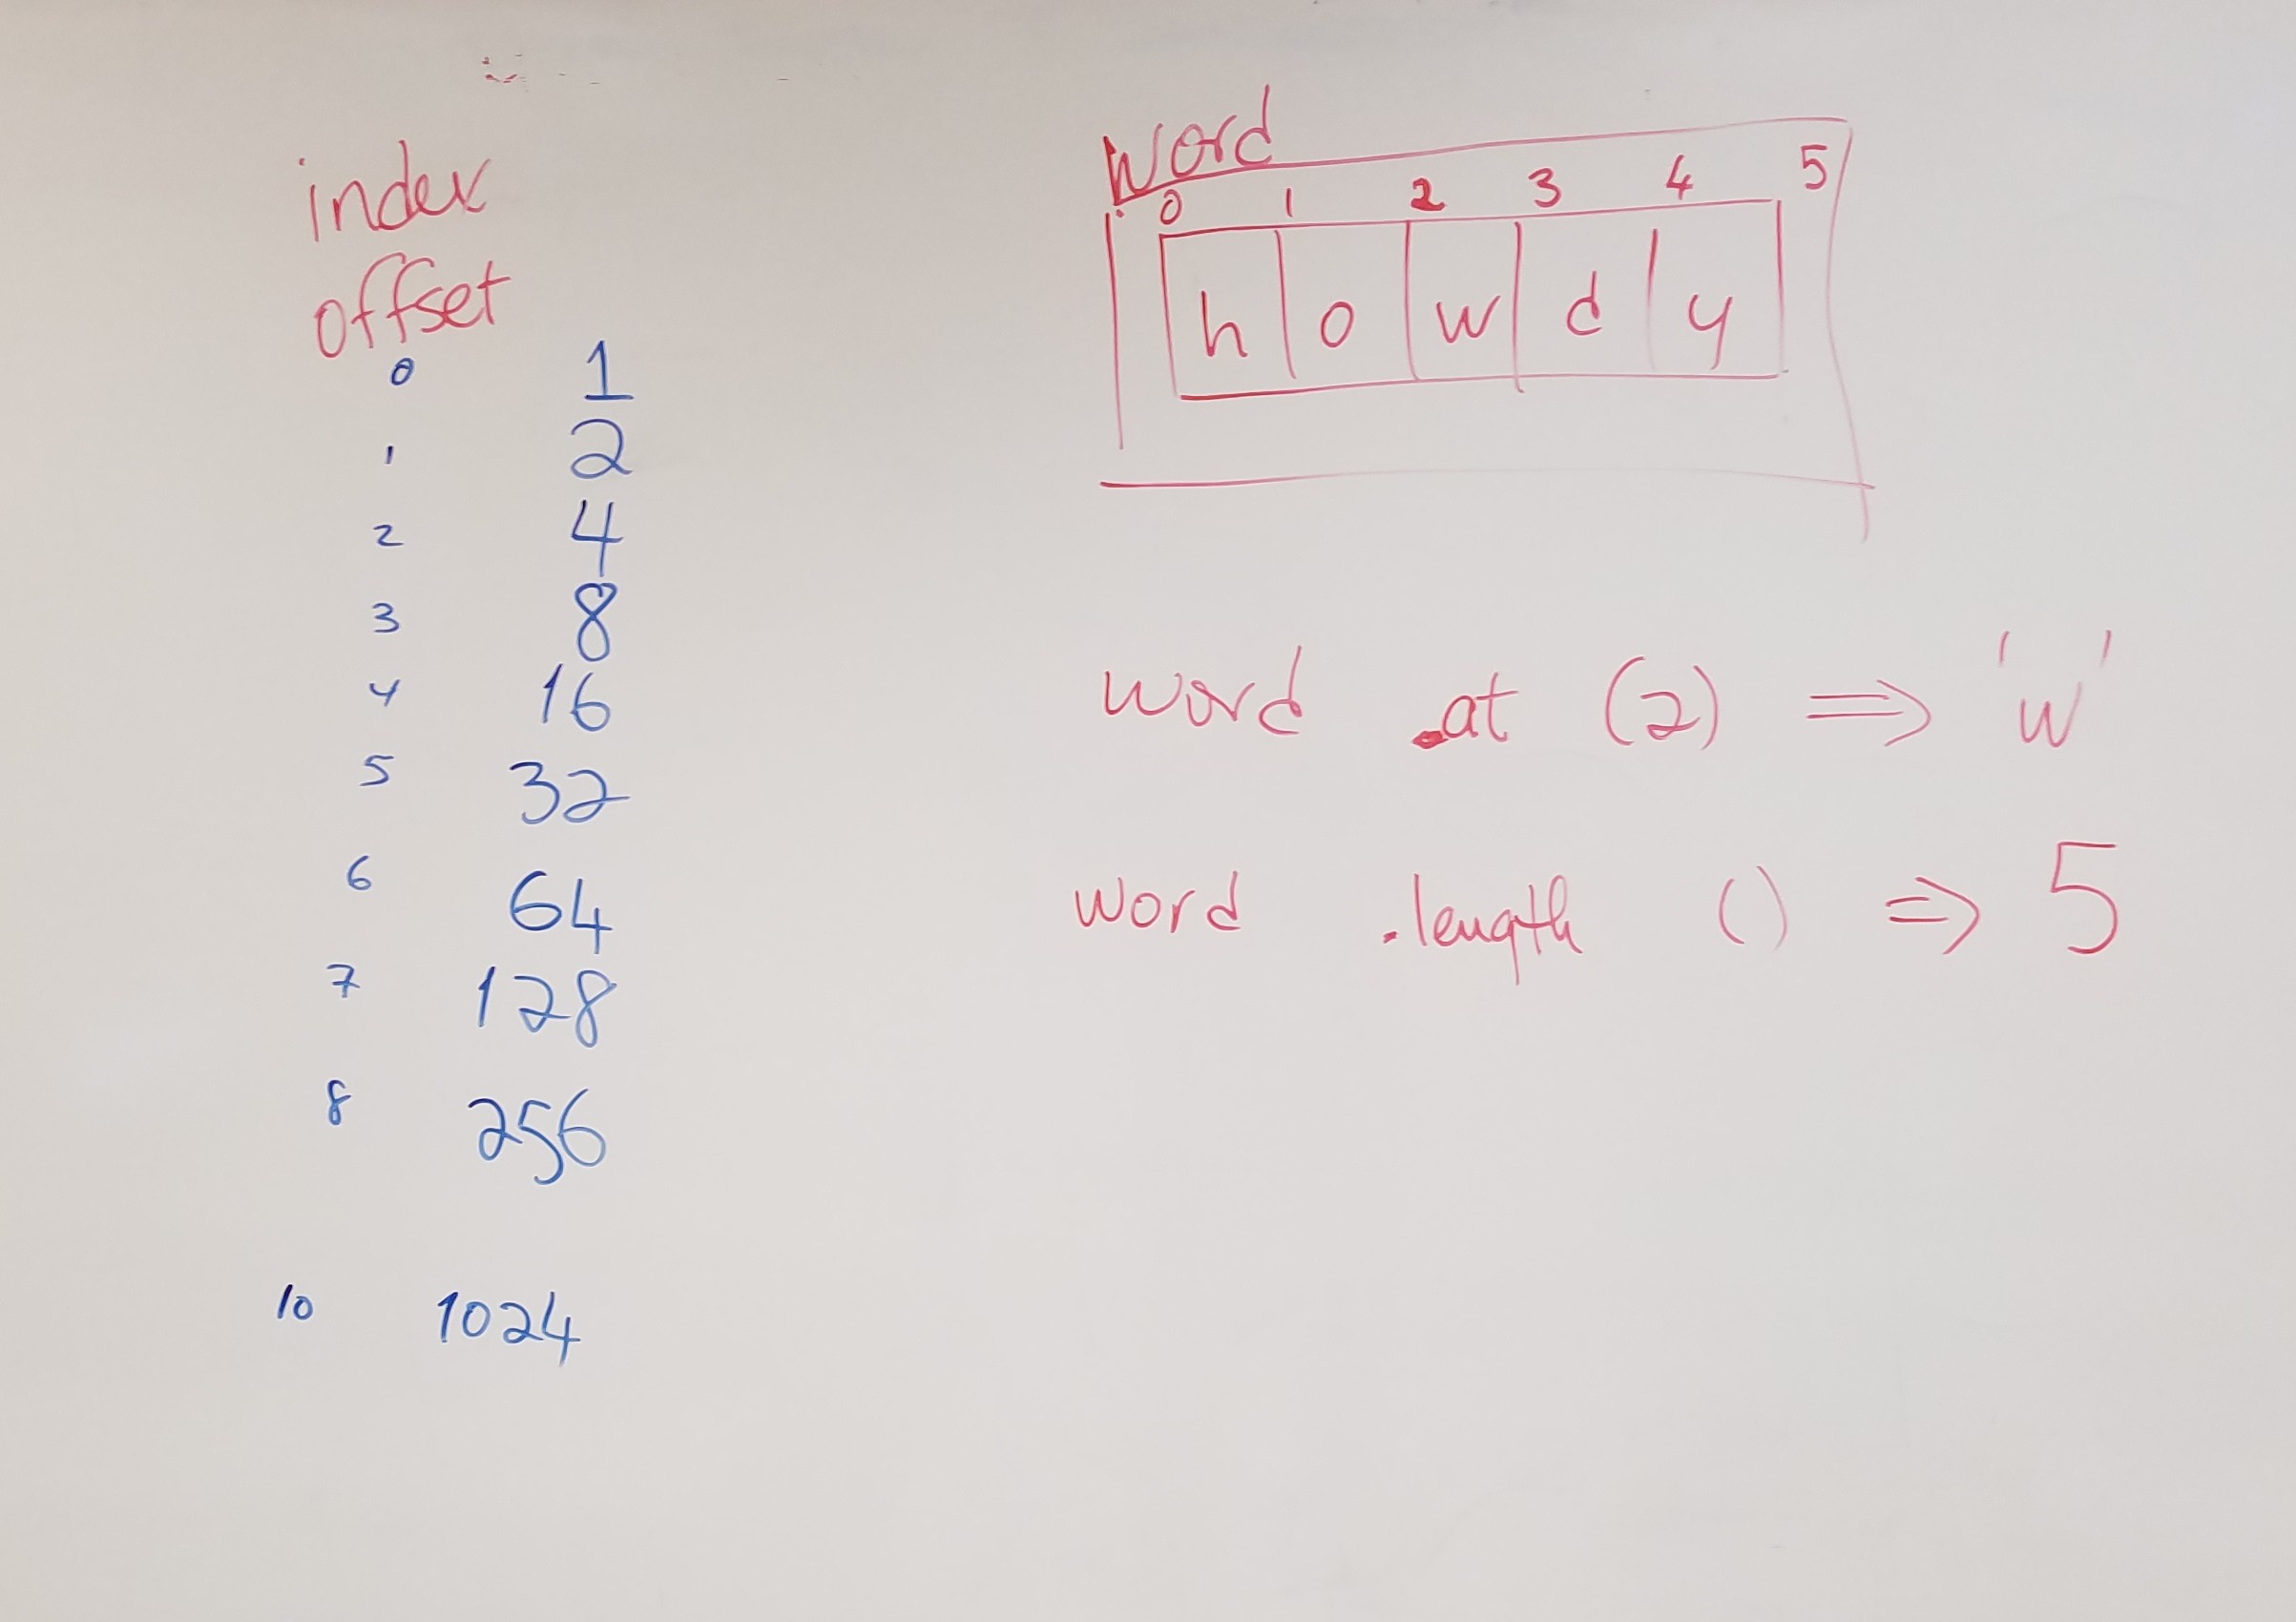 index
offset
0 1
1 2
2 4
3 8
4 16
5 32
6 64
7 128
8 256
10 1024
word
0 1 2 3 4 5
h o w d y
word .at (2) ⇒ 'w'
word .length () ⇒ 5